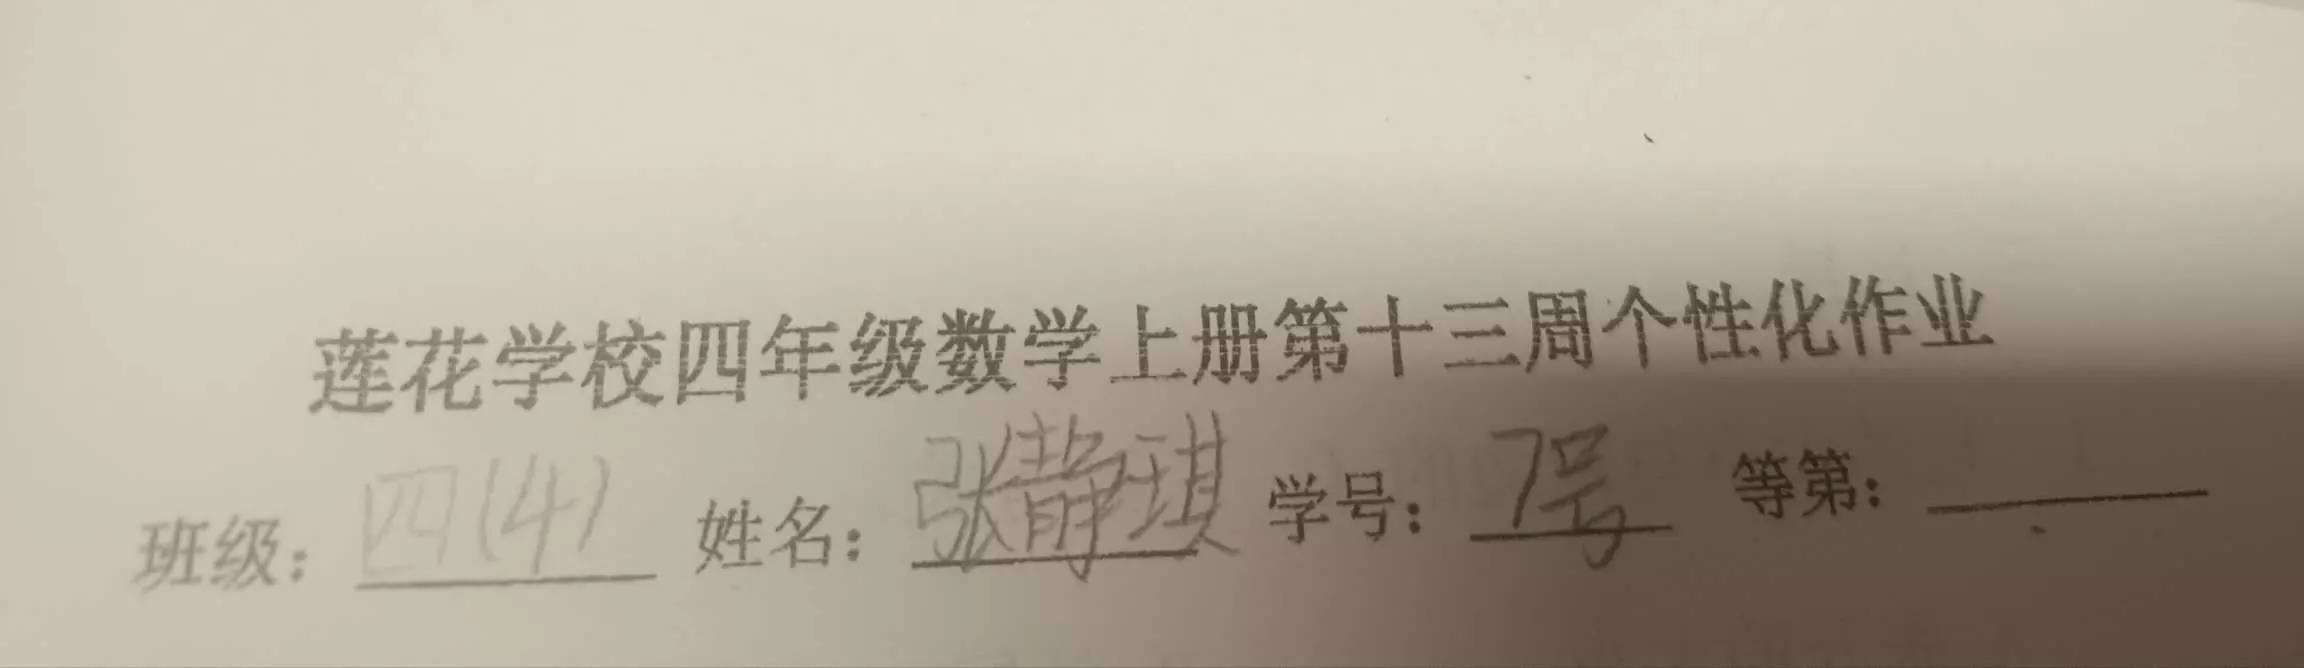 莲花学校四年级数学上册第十三周个性化作业
班级：四(4) 姓名：张静琪 学号：7号 等第：